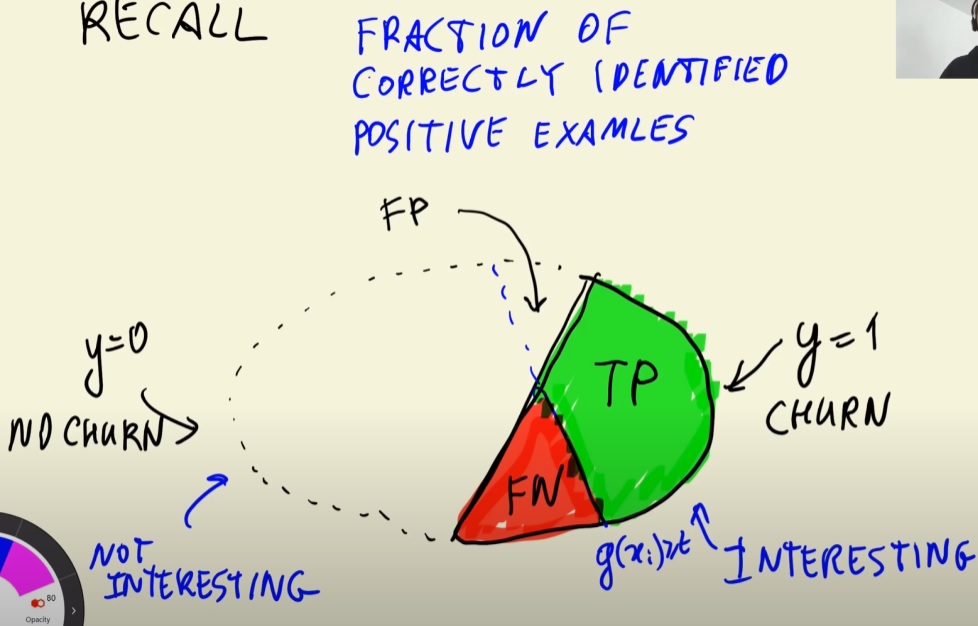 RECALL
FRACTION OF
CORRECTLY IDENTIFIED
POSITIVE EXAMLES
FP
y=0
NO CHURN
TP
y=1
CHURN
FN
g(xi)≥t
INTERESTING
NOT
INTERESTING
80
Opacity